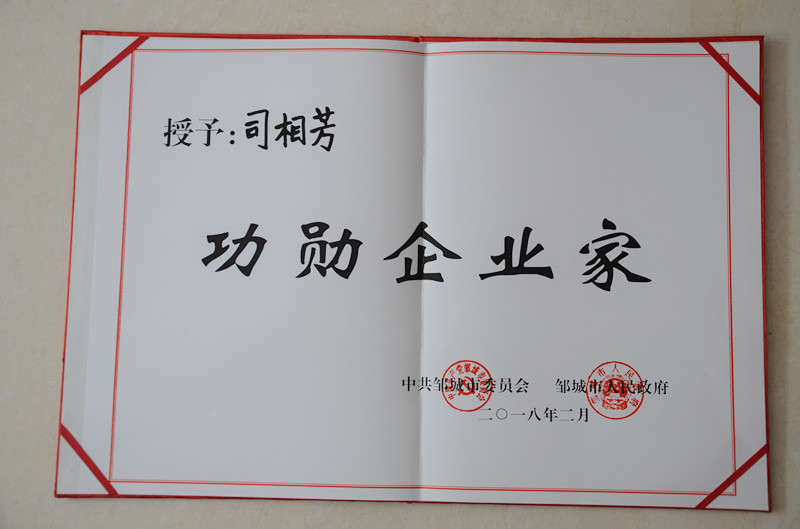 授予:司相芳
功勋企业家
中共邹城市委员会 邹城市人民政府
二〇一八年二月